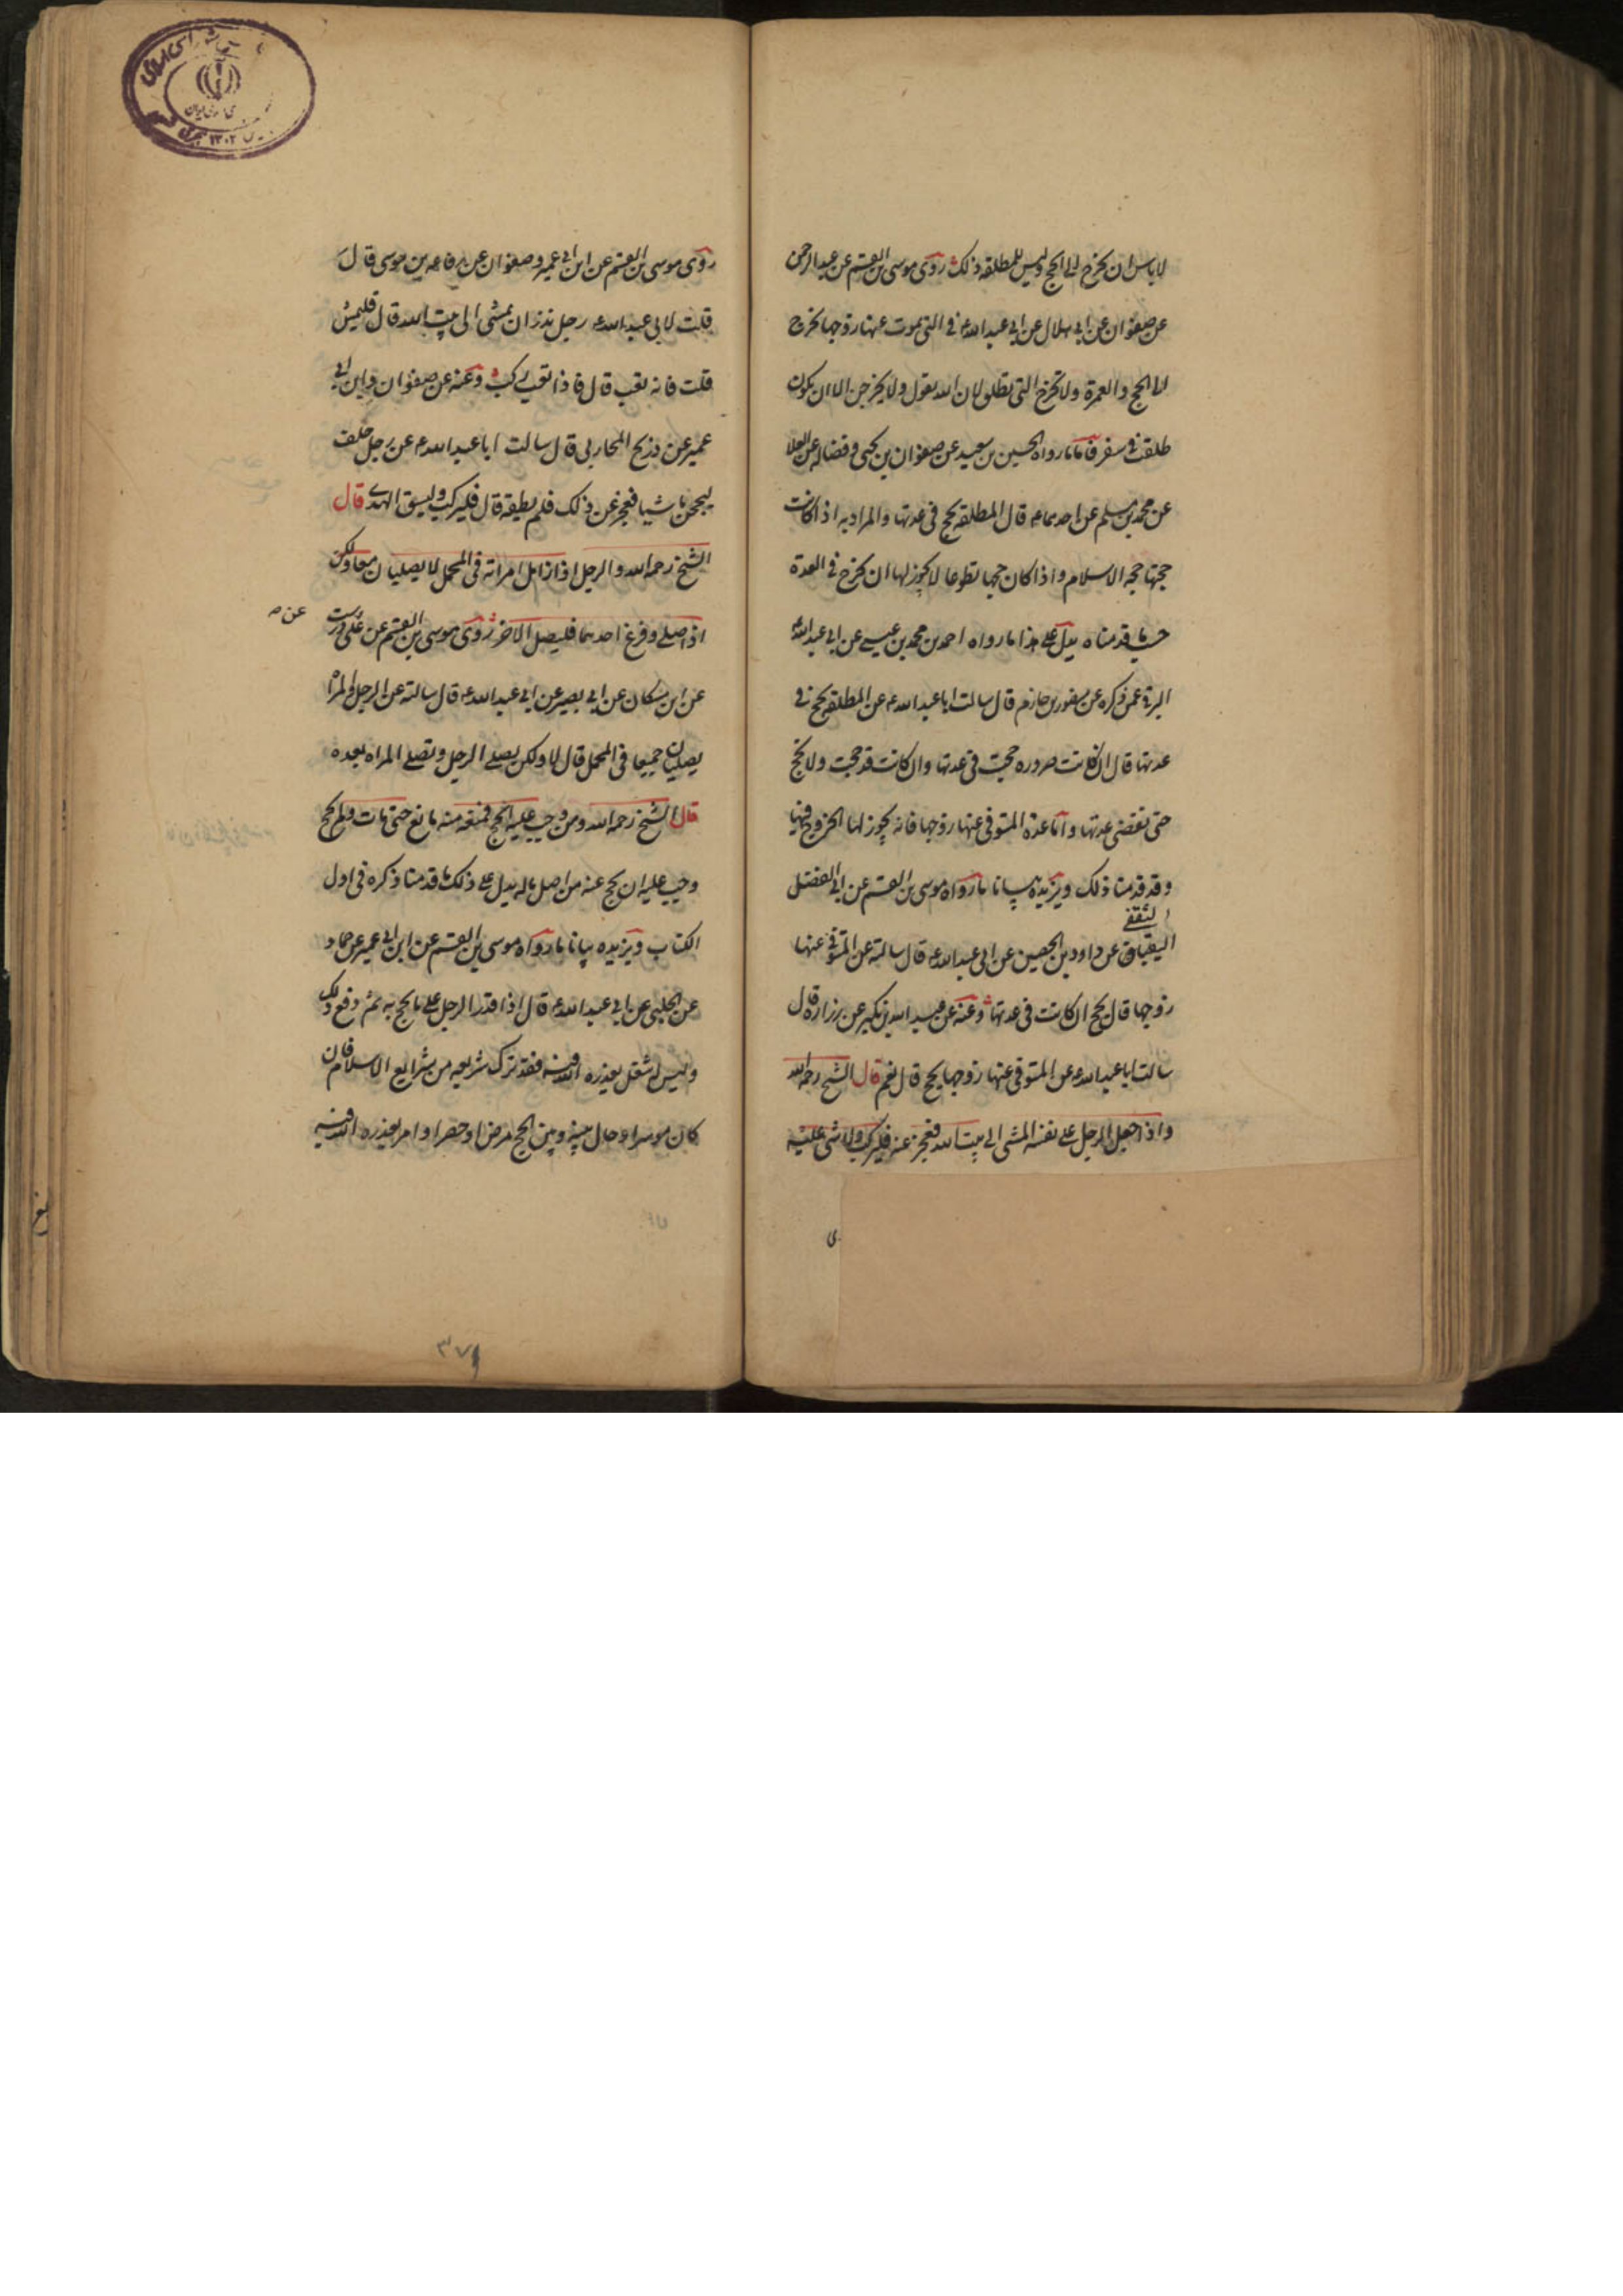 لاباس ان يخرج الى الحج وليس للمطلقه ذلك روى موسى بن القسم عن عبد الرحمن
عن صفوان عن ابى هلال عن ابى عبد الله ع فى التى يموت عنها زوجها تخرج
الى الحج والعمرة ولا تخرج التى تطلق لان الله يقول ولا يخرجن الا ان يكون
طلقت فى سفر فاما ما رواه الحسين بن سعيد عن صفوان بن يحيى وفضاله عن العلا
عن محمد بن مسلم عن احدهما ع قال المطلقه تحج فى عدتها والمراد به اذا كانت
حجتها حجه الاسلام واذا كان حجها تطوعا لا يجوز لها ان تخرج فى العدة
حسب ما قدمناه يدل على هذا ما رواه احمد بن محمد بن عيسى عن ابى عبد الله
البرقى عمن ذكره عن منصور بن حازم قال سالت ابا عبد الله ع عن المطلقه تحج فى
عدتها قال ان كانت صروره حجت فى عدتها وان كانت قد حجت ولا تحج
حتى تقضى عدتها واما عدة المتوفى عنها زوجها فانه يجوز لها الخروج فيها
وقد قدمنا ذلك ويزيده بيانا ما رواه موسى بن القسم عن ابى الفضل
الثقفى
عن داود بن الحصين عن ابى عبد الله ع قال سالته عن المتوفى عنها
زوجها قال تحج ان كانت فى عدتها وعنه عن عبيد الله بن بكير عن زراره قال
سالت ابا عبد الله ع عن المتوفى عنها زوجها تحج قال نعم قال الشيخ رحمه الله
واذا جعل الرجل على نفسه المشى الى بيت الله فعجز عنه فليركب ولا شى عليه
روى موسى بن القسم عن ابن ابى عمير وصفوان عن رفاعه بن موسى قال
قلت لابى عبد الله ع رجل نذر ان يمشى الى بيت الله قال فليمش
قلت فانه تعب قال فاذا تعب ركب وعنه عن صفوان وابن ابى
عمير عن ذريح المحاربى قال سالت ابا عبد الله ع عن رجل حلف
ليحجن ماشيا فعجز عن ذلك فلم يطيقه قال فليركب وليسق الهدى قال
الشيخ رحمه الله والرجل اذا زامل امراته فى المحمل لا يصليان معا ولكن
اذا صلى وفرغ احدهما فليصل الاخر روى موسى بن القسم عن على عن درست
عن ابن مسكان عن ابى بصير عن ابى عبد الله ع قال سالته عن الرجل والمراة
يصليان جميعا فى المحمل قال لا ولكن يصلى الرجل وتصلى المراه بعده
قال الشيخ رحمه الله ومن وجب عليه الحج فمنعه منه مانع حتى مات ولم يحج
وجب عليه ان يحج عنه من اصل ماله يدل على ذلك ما قدمنا ذكره فى اول
الكتاب ويزيده بيانا ما رواه موسى بن القسم عن ابن ابى عمير عن حماد
عن الحلبى عن ابى عبد الله ع قال اذا قدر الرجل على ما يحج به ثم دفع ذلك
وليس له شغل يعذره الله فيه فقد ترك شريعه من شرايع الاسلام فان
كان موسرا وحال بينه وبين الحج مرض او حصر او امر يعذره الله فيه
٣٧٩